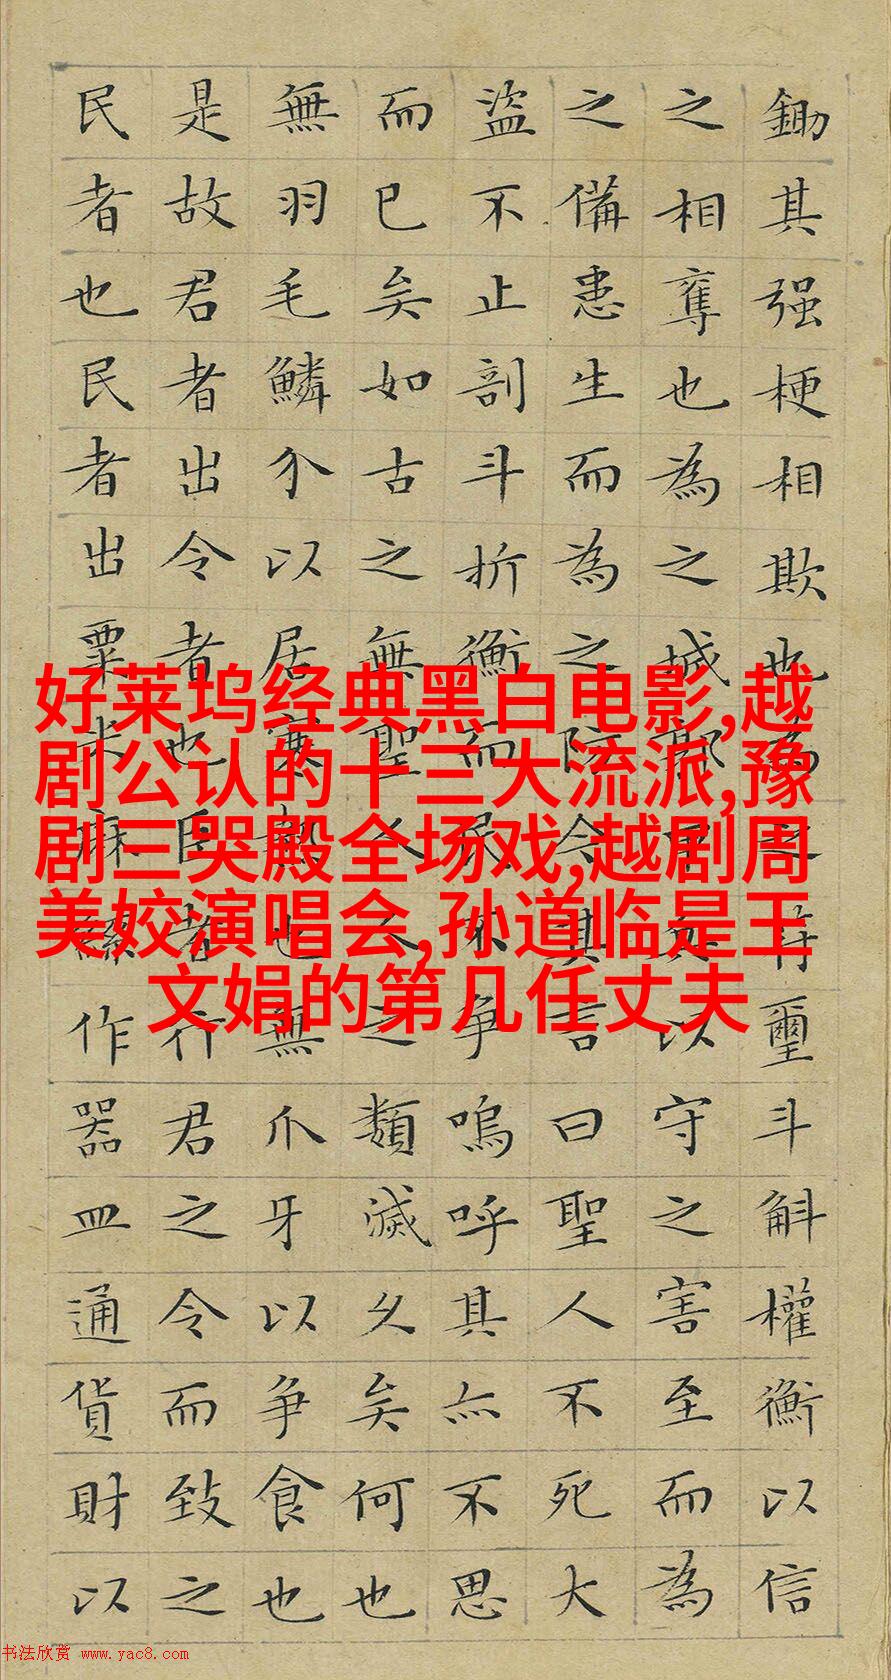 鋤其强梗相欺也為之符璽斗斛權衡以信
之相奪也為之城郭甲兵以守之害至而為
之備患生而為之防今其言曰聖人不死大
盜不止剖斗折衡而民不爭嗚呼其亦不思
而已矣如古之無聖人人之類滅久矣何也
無羽毛鱗介以居寒熱也無爪牙以爭食也
是故君者出令者也臣者行君之令而致之
民者也民者出粟米麻絲作器皿通貨財以
好莱坞经典黑白电影,越
剧公认的十三大流派,豫
剧三哭殿全场戏,越剧周
美姣演唱会,孙道临是王
文娟的第几任丈夫
书法欣赏 www.yac8.com